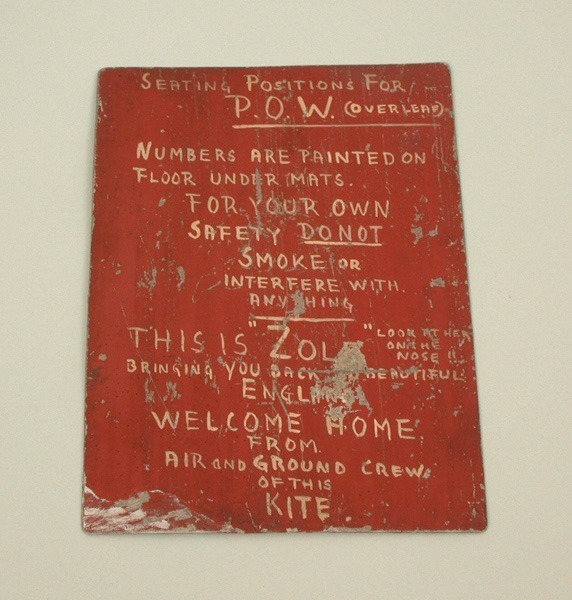 SEATING POSITIONS FOR
P.O.W. (OVERLEAF)
NUMBERS ARE PAINTED ON
FLOOR UNDER MATS.
FOR YOUR OWN
SAFETY DO NOT
SMOKE OR
INTERFERE WITH
ANYTHING
THIS IS "ZOL "
"LOOK AT HER
ON THE
NOSE !!
BRINGING YOU BACK BEAUTIFUL
ENGLAND
WELCOME HOME
FROM
AIR AND GROUND CREWS
OF THIS
KITE.